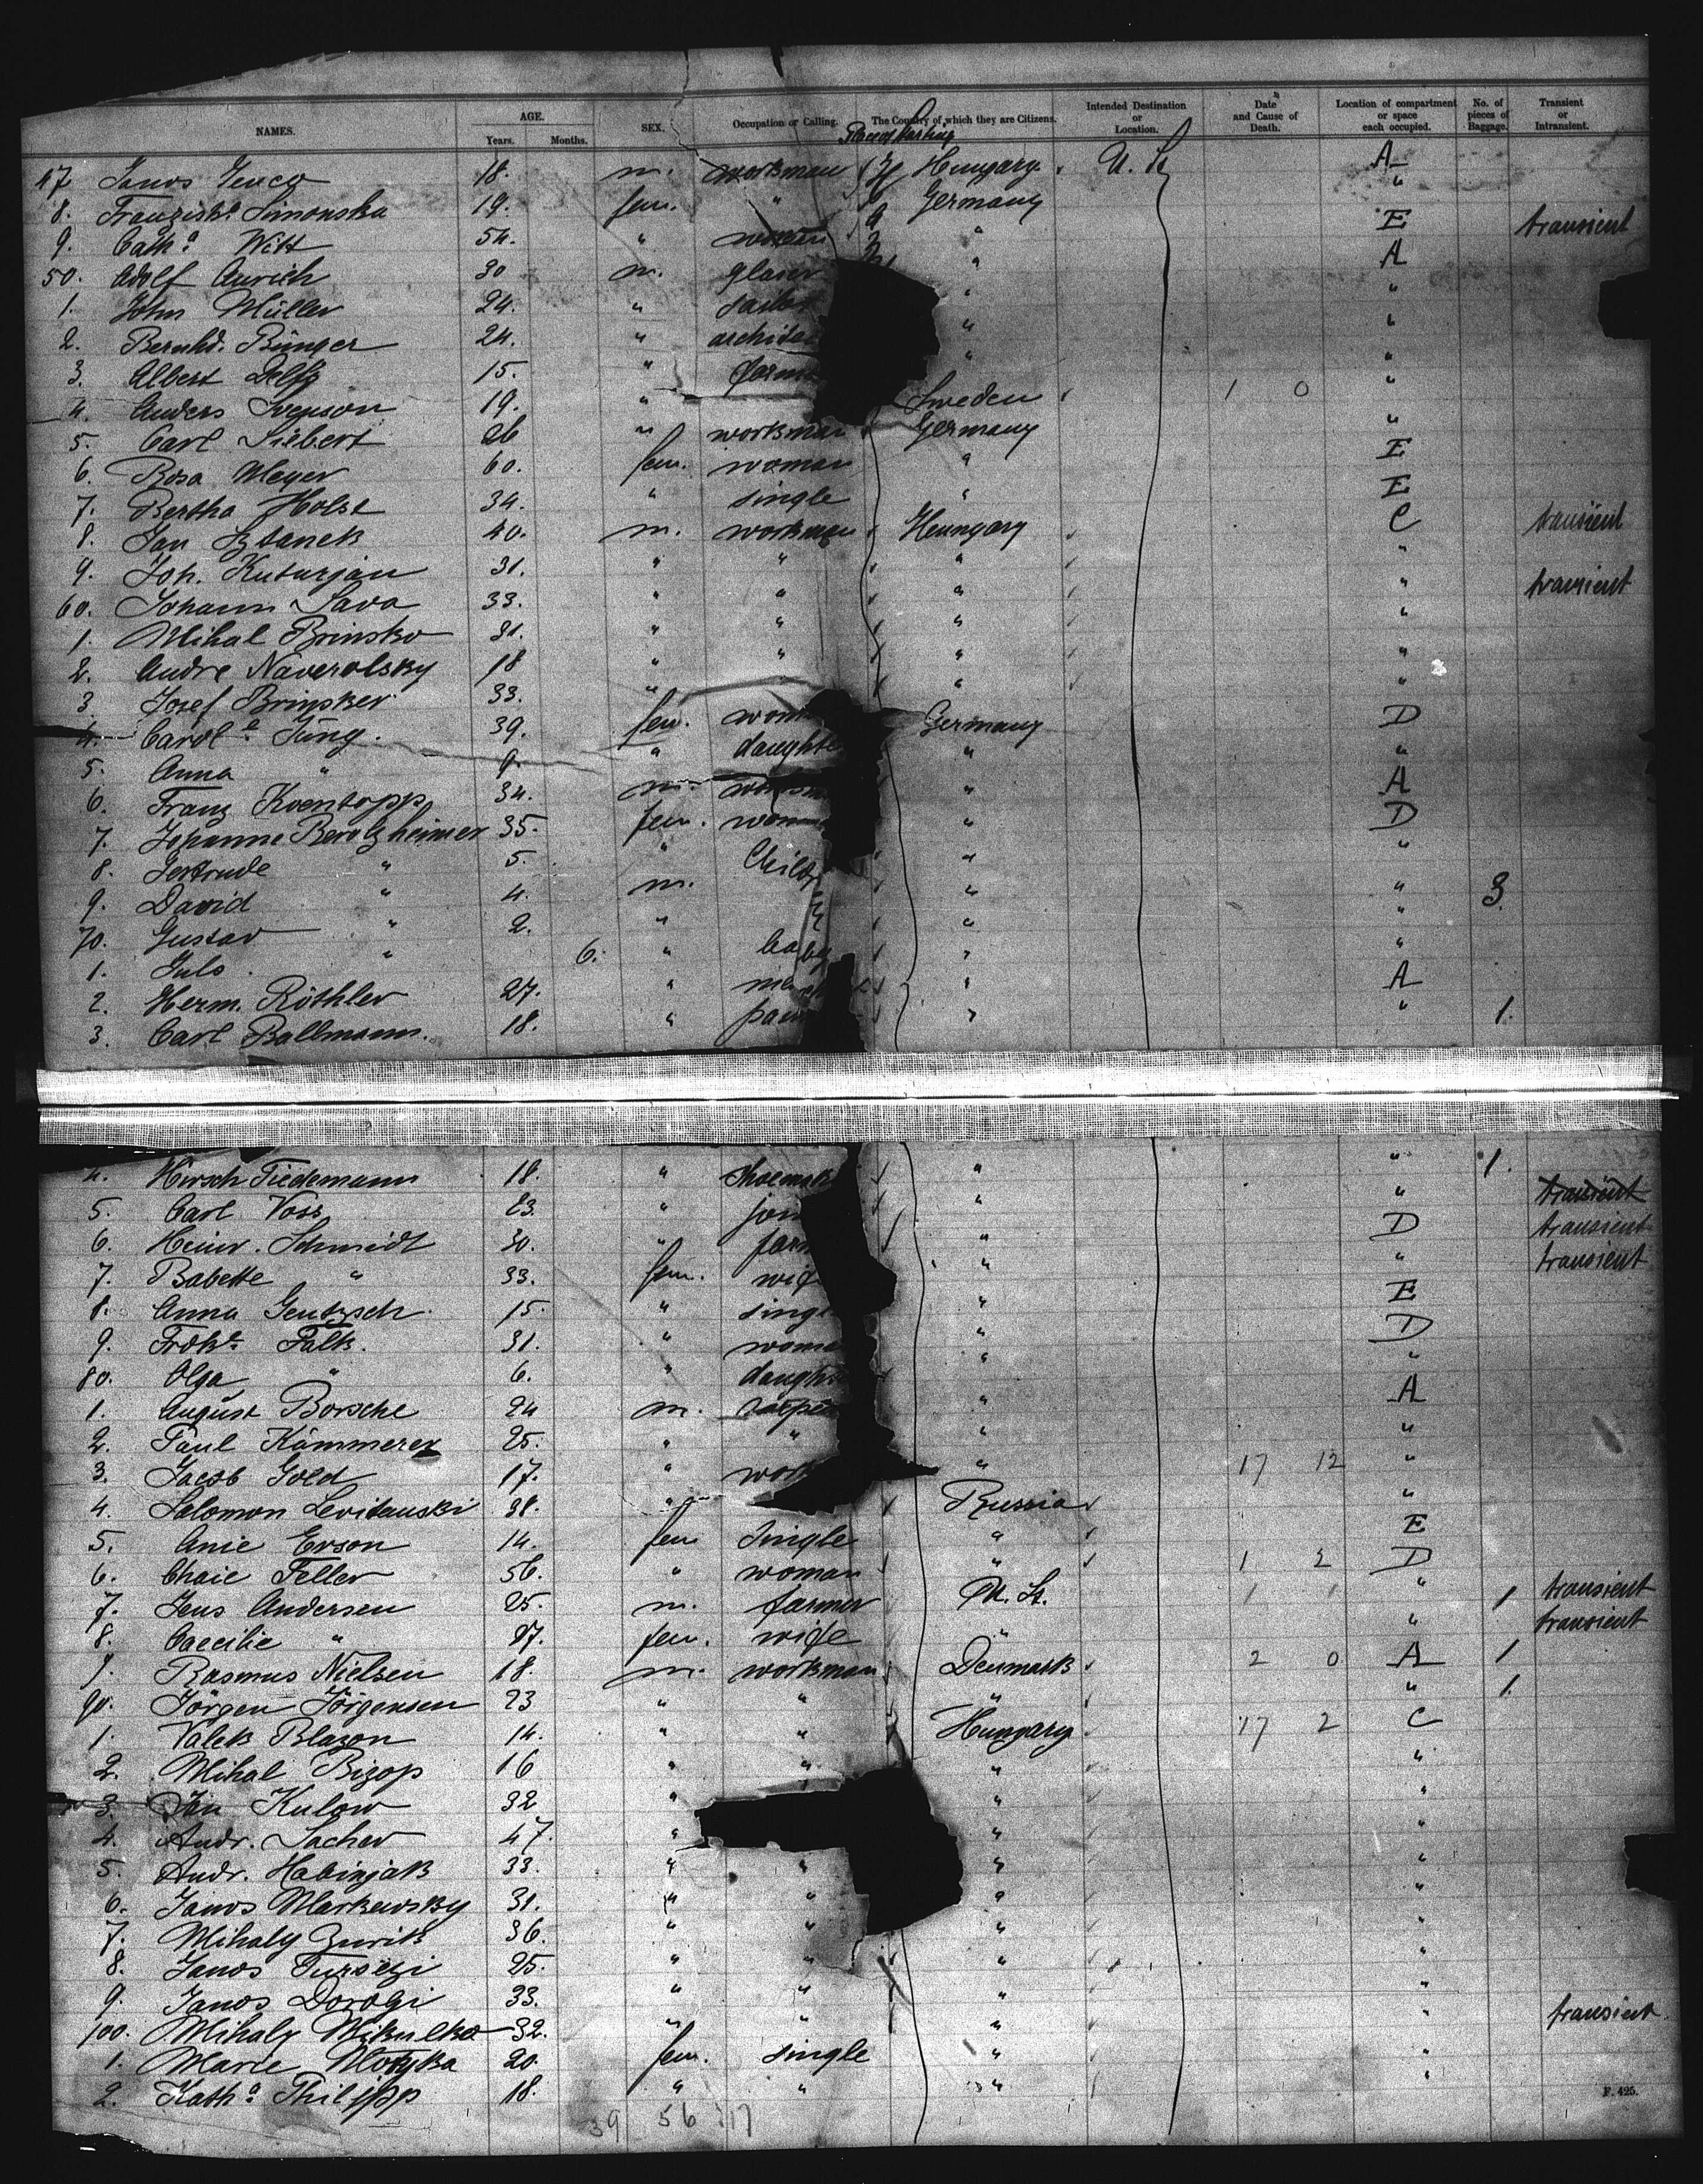 NAMES. AGE. Years. Months. SEX. Occupation or Calling. The Country of which they are Citizens. Intended Destination or Location. Date and Cause of Death. Location of compartment or space each occupied. No. of pieces of Baggage. Transient or Intransient.
47 Janos 18. m. workman Hungary. U. St A
8. Franziska Simonska 19. fem. " Germany "
9. Cath.a Witt 54. " woman " E transient
50. Adolf Aurich 30 m. glaser " A
1. John Müller 24. " " "
2. Bernhd. Bünger 24. " archite " "
3. Albert 15. " farme " "
4. Anders Svenson 19. " Sweden 1 0 "
5. Carl Siebert 26 " workman Germany "
6. Rosa Meyer 60. fem. woman " E
7. Bertha Holst 34. " single " E
8. Jan Sztanek 40. m. workman Hungary C transient
9. Joh. Kuturjan 31. " " " "
60. Johann Sava 33. " " " " transient
1. Mihal Brinsko 31. " " " "
2. Andre Naverolsky 18 " " " "
3 Josef Brinsker 33. " " "
4. Carol.e Jüng. 39. fem. wom Germany D
5. Anna " 9. " daughte " "
6. Franz Koentopp 34. m. workm " A
7. Johanne Berolzheimer 35. fem. wom " D
8. Gertrude " 5. " Childr " "
9. David " 4. m. " " 3.
70. Gustav " 2. " " "
1. Juls. " 6. " baby " "
2. Herm. Röthler 27. " " A
3. Carl Ballmann. 18. " pain " " 1.
4. Hirsch Tiedemann 18. " shoemak " " 1.
5. Carl Voss 23. " " " transient
6. Heinr. Schmidt 30. " farm " D transient
7. Babette " 33. fem. wife " " transient
8. Anna Gentzsch 15. " singl " E
9. Frdk.e Falk. 31. " woma " D
80. Olga " 6. " daughte " "
1. August Borsche 24 m. " A
2. Paul Kämmerer 25. " " " "
3. Jacob Gold 17. " work " 17 12 "
4. Salomon Levitanski 38. " Russia "
5. Anie Erson 14. fem Single " E
6. Chaie Feller 56. " woman " 1 2 D
7. Jens Andersen 25. m. farmer U. St. 1 1 " 1 transient
8. Caecilie " 27. fem. wife " " transient
9. Rasmus Nielsen 18. m. workman Denmark 2 0 A 1
90. Jörgen Jörgensen 23 " " " " 1.
1. Valek Blazon 14. " " Hungary 17 2 C
2. Mihal Bizop 16 " " " "
3. Jan Kulow 32 " " "
4. Andr. Sacher 47. " " "
5. Andr. Habinjak 33. " " " "
6. Janos Markewsky 31. " " " "
7. Mihaly Zurik 36. " " " "
8. Janos 25. " " " "
9. Janos Dorogi 33. " " " "
100. Mihaly Mikulka 32. " " " " transient.
1. Marie Motyka 20. fem. single " "
2. Kath.a Philipp 18. " " " "
F. 425.
39 56 17